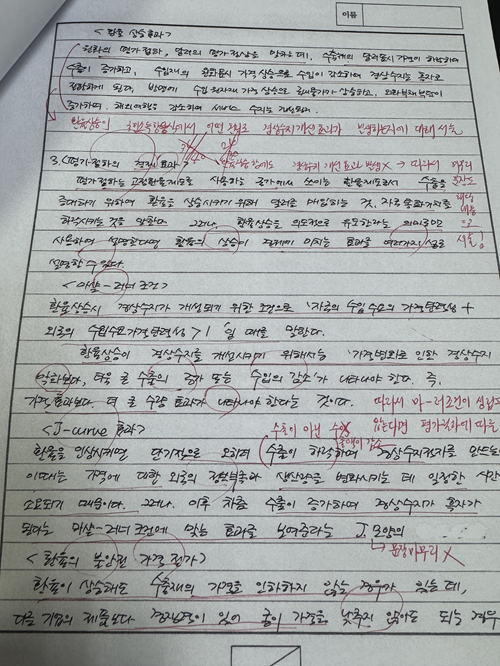 이름
<환율 상승효과>
원화의 평가절하, 달러의 평가절상을 말하는데, 수출재의 달러표시 가격이 하락하여
수출이 증가하고, 수입재의 원화표시 가격 상승으로 수입이 감소하여 경상수지는 흑자로
전환하게 된다. 반면에 수입 원자재 가격 상승으로 국내물가가 상승하고, 외화부채 부담이
증가하며, 해외여행은 감소하여 서비스 수지는 개선된다.
환율상승이 어떤 경로로 경상수지 개선효과가 발생하는지에 대해 서술
3. <평가절하의 경제효과>
경상수지 개선 효과 발생 X → 따라서
평가절하는 고정환율제도를 사용하는 국가에서 쓰이는 환율제도로서 수출을
증대하기 위하여 환율을 상승시키기 위해 달러를 매입하는 것, 자국통화가치를
하락시키는 것을 말한다. 그러나, 환율상승을 의도적으로 유도한다는 의미로만
사용하여 설명한다면 환율의 상승이 경제에 미치는 효과를 여러가지로
서술!
설명할 수 있다.
<마샬-러너 조건>
환율상승시 경상수지가 개선되기 위한 조건으로 '자국의 수입수요의 가격탄력성 +
외국의 수입수요가격탄력성 > 1' 일 때를 말한다.
환율상승이 경상수지를 개선시키기 위해서는 '가격변화로 인한 경상수지
악화보다, 더욱 큰 수출의 증가 또는 수입의 감소'가 나타나야 한다. 즉,
가격효과보다 더 큰 수량 효과가 나타나야 한다는 것이다.
따라서 마-러조건이 성립
<J-curve 효과>
수출이 아닌 수출액이 감소
않는다면 평가절하에 따른
환율을 인상시키면 단기적으로 오히려 수출이 하락하며 경상수지적자를 만드는
이때는 가격에 대한 외국의 정보부족과 생산량을 변화시키는 데 일정한 시간
소요되기 때문이다. 그러나, 이후 차츰 수출이 증가하여 경상수지가 흑자가
된다는 마샬-러너 조건에 맞는 효과를 보여준다는 J 모양의
→ 문장마무리 X
<환율의 불완전 가격 전가>
환율이 상승해도 수출재의 가격을 인하하지 않는 경우가 있는데,
다른 기업의 제품보다 경쟁력이 있어 굳이 가격을 낮추지 않아도 되는 경우